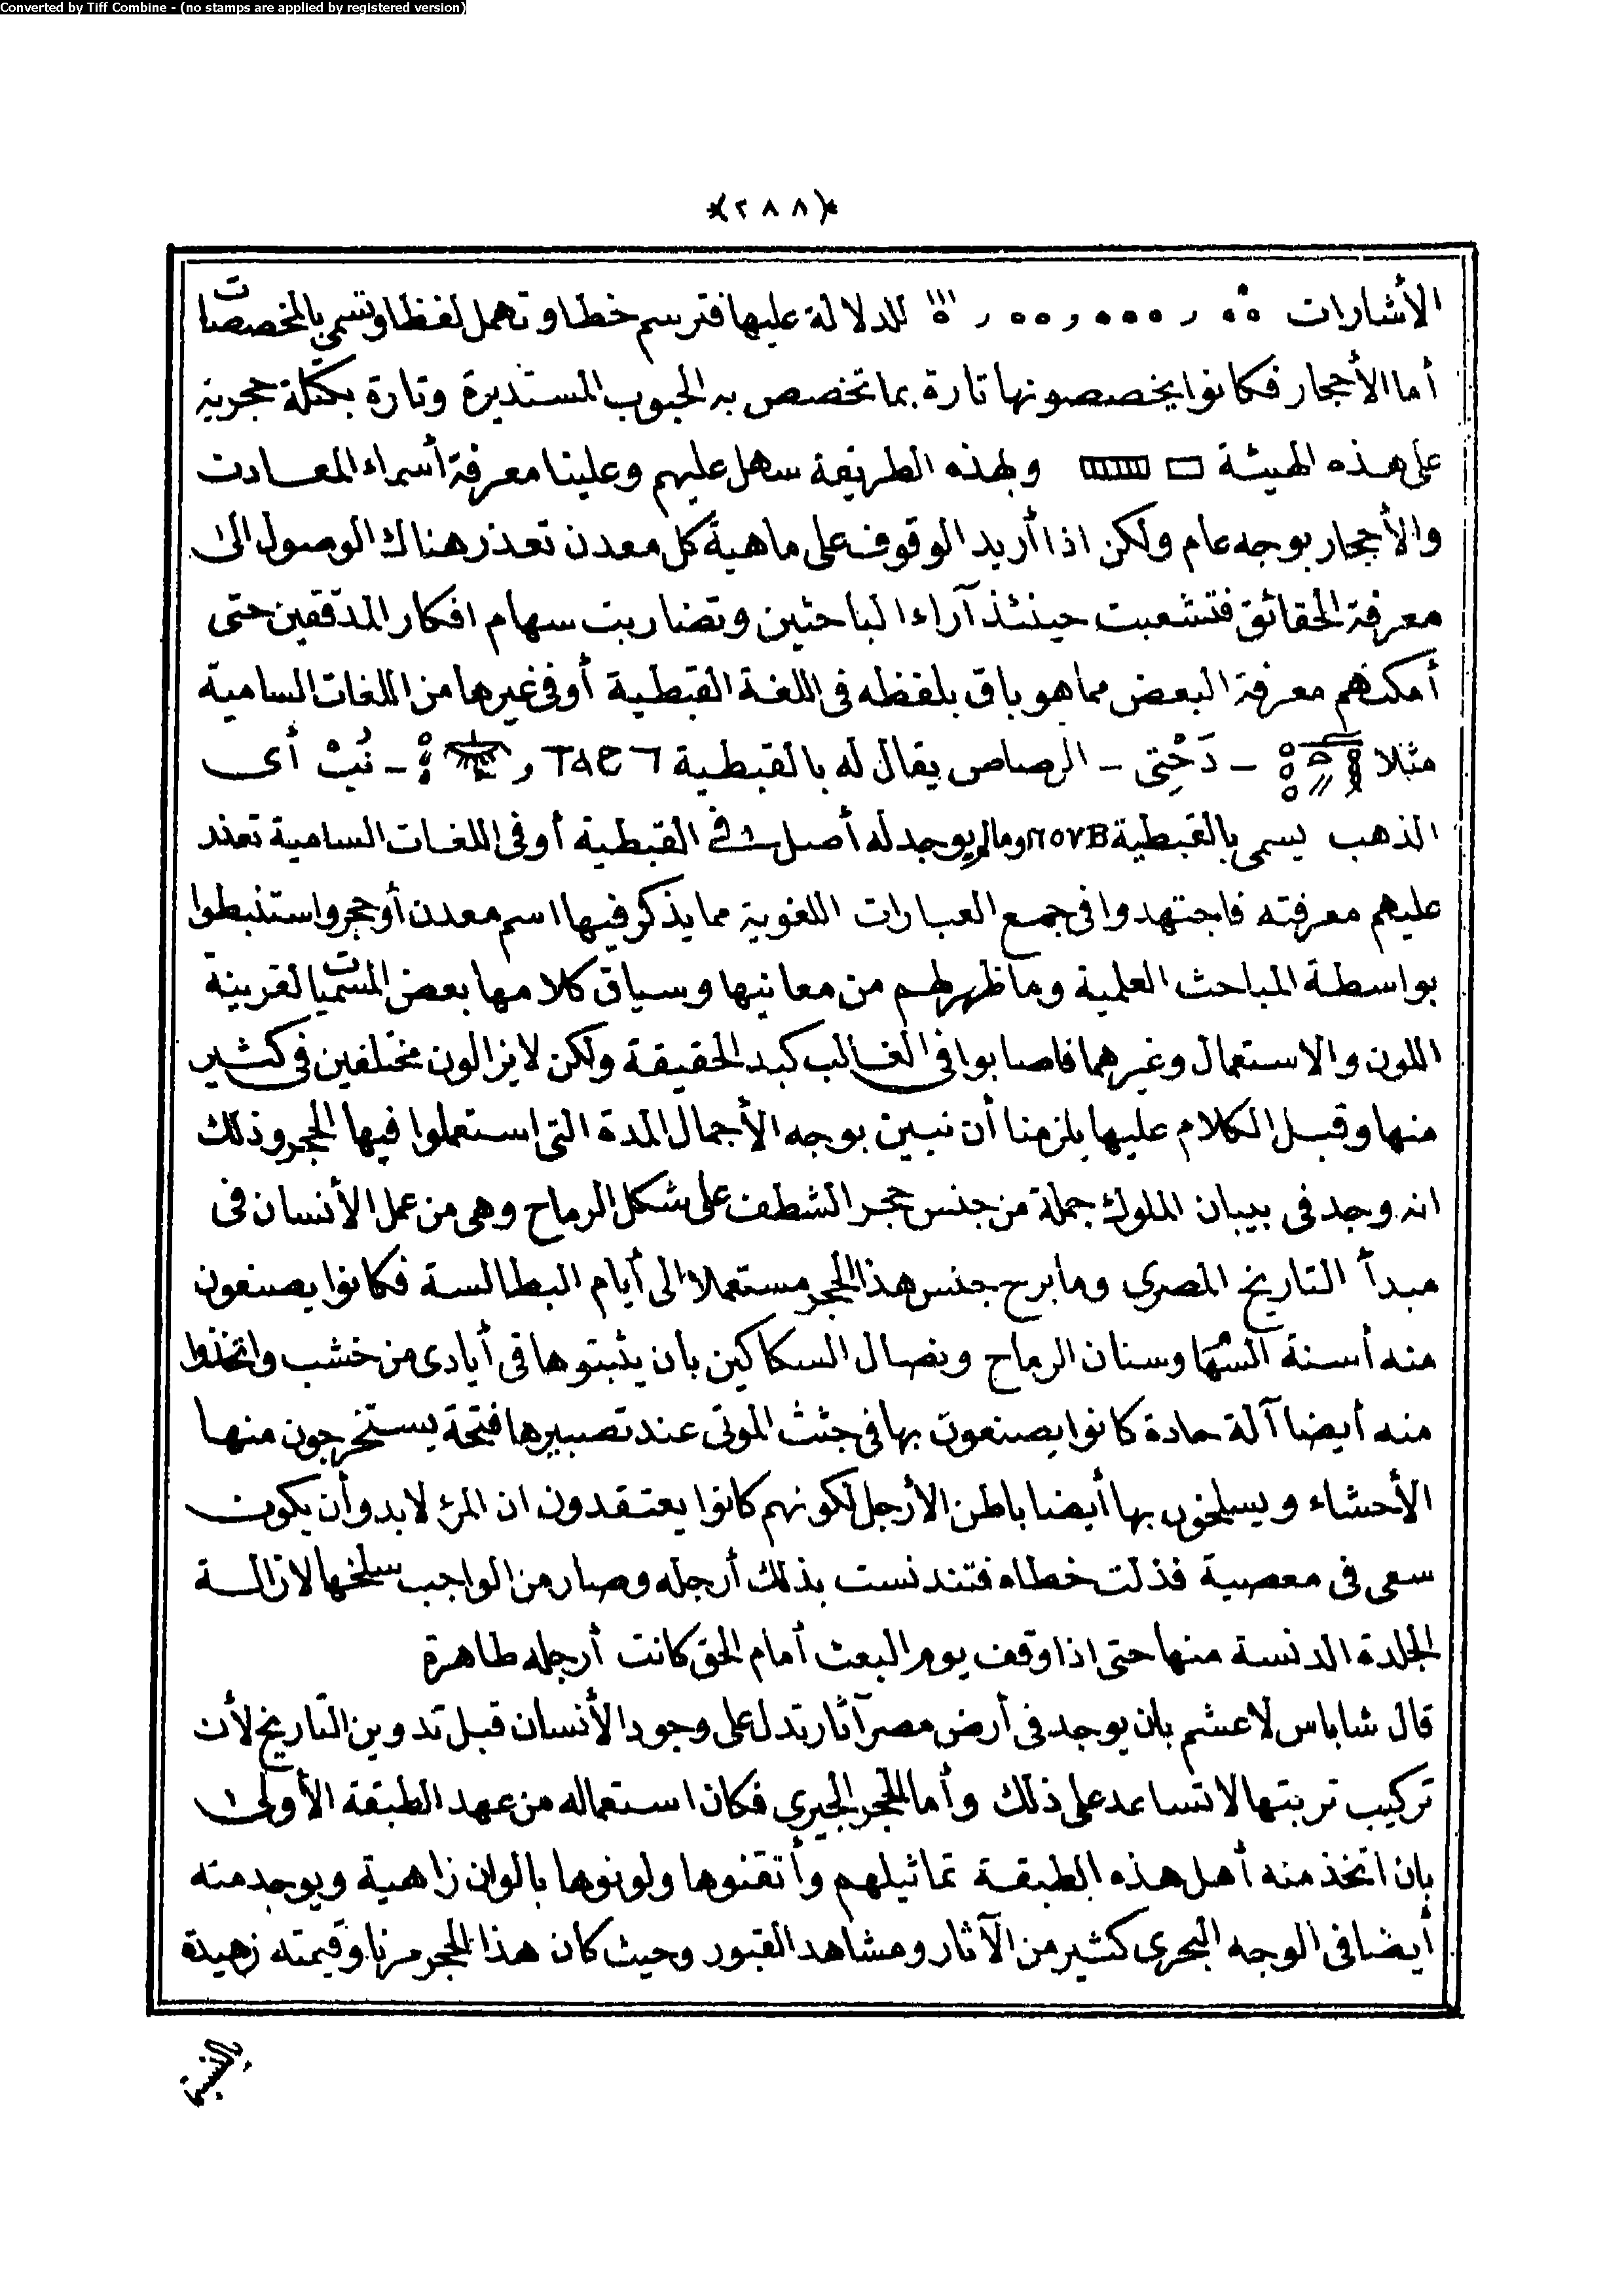 Converted by Tiff Combine - (no stamps are applied by registered version)
*(٢٨٨)*
الأشارات للدلالة عليها فترسم خطا وتهمل لفظا وتسمى بالمخصصات
أما الأحجار فكانوا يخصصونها تارة بما تخصص به الحبوب المستديرة وتارة بكتلة حجرية
على هذه الهيئة وبهذه الطريقة سهل عليهم وعلينا معرفة أسماء المعادن
والأحجار بوجه عام ولكن اذا أريد الوقوف على ماهية كل معدن تعذر هناك الوصول الى
معرفة الحقائق فتشعبت حينئذ آراء الباحثين وتضاربت سهام افكار المدققين حتى
أمكنهم معرفة البعض مما هو باق بلفظه فى اللغة القبطية أو فى غيرها من اللغات السامية
مثلا - دَحْتِى - الرصاص يقال له بالقبطية ⲧⲁϩⲧ و - نُبْ أى
الذهب يسمى بالقبطية ⲛⲟⲩⲃ وما لم يوجد له أصل فى القبطية أو فى اللغات السامية تعذر
عليهم معرفته فاجتهدوا فى جمع العبارات اللغوية مما يذكر فيها اسم معدن أو حجر واستنبطوا
بواسطة المباحث العلمية وما ظهر لهم من معانيها وسياق كلامها بعض المسميات لقرينة
اللون والاستعمال وغيرهما فاصابوا فى الغالب كبد الحقيقة ولكن لا يزالون مختلفين فى كثير
منها وقبل الكلام عليها يلزمنا أن نبين بوجه الأجمال المدة التى استعملوا فيها الحجر وذلك
انه وجد فى بيبان الملوك جملة من جنس حجر الشطف على شكل الرماح وهى من عمل الأنسان فى
مبدأ التاريخ المصرى وما برح جنس هذا الحجر مستعملا الى أيام البطالسة فكانوا يصنعون
منه أسنة السهام وسنان الرماح ونصال السكاكين بان يثبتوها فى أيادى من خشب واتخذوا
منه أيضا آلة حادة كانوا يصنعون بها فى جثث الموتى عند تصبيرها فتحة يستخرجون منها
الأحشاء ويسلخون بها أيضا باطن الأرجل لكونهم كانوا يعتقدون ان المرئ لا بد وأن يكون
سعى فى معصية فذلت خطاه فتندنست بذلك أرجله وصار من الواجب سلخها لازالة
الجلدة الدنسة منها حتى اذا وقف يوم البعث أمام الحق كانت أرجله طاهرة
قال شاباس لا عشم بان يوجد فى أرض مصر آثار تدل على وجود الأنسان قبل تدوين التاريخ لأن
تركيب تربتها لا تساعد على ذلك وأما الحجر الجيرى فكان استعماله من عهد الطبقة الأولى
بان اتخذ منه أهل هذه الطبقة تماثيلهم وأتقنوها ولونوها بالوان زاهية ويوجد منه
أيضا فى الوجه البحرى كثير من الآثار ومشاهد القبور وحيث كان هذا الحجر مرنا وقيمته زهيدة